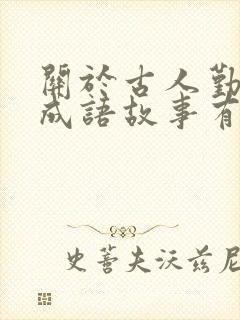 關於古人勤
成語故事有
史蒂夫沃茲尼